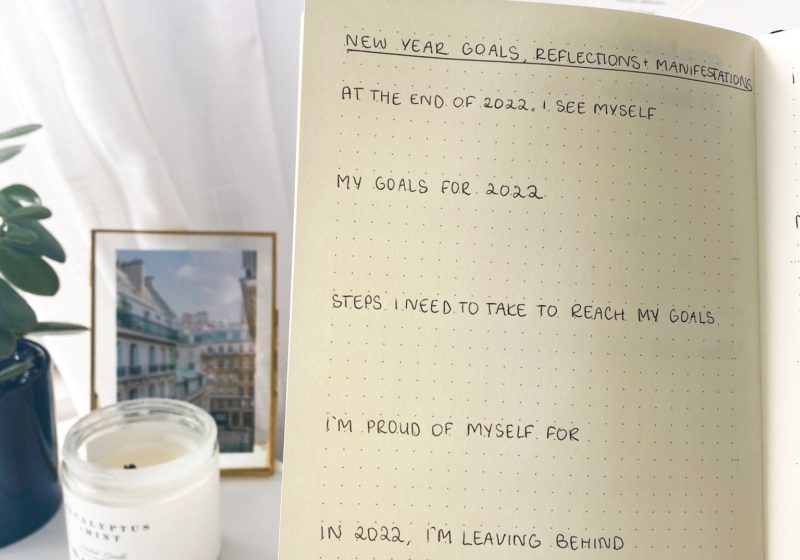 NEW YEAR GOALS, REFLECTIONS + MANIFESTATIONS
AT THE END OF 2022, I SEE MYSELF
MY GOALS FOR 2022
STEPS I NEED TO TAKE TO REACH MY GOALS
I'M PROUD OF MYSELF FOR
IN 2022, I'M LEAVING BEHIND
EUCALYPTUS
+ MINT